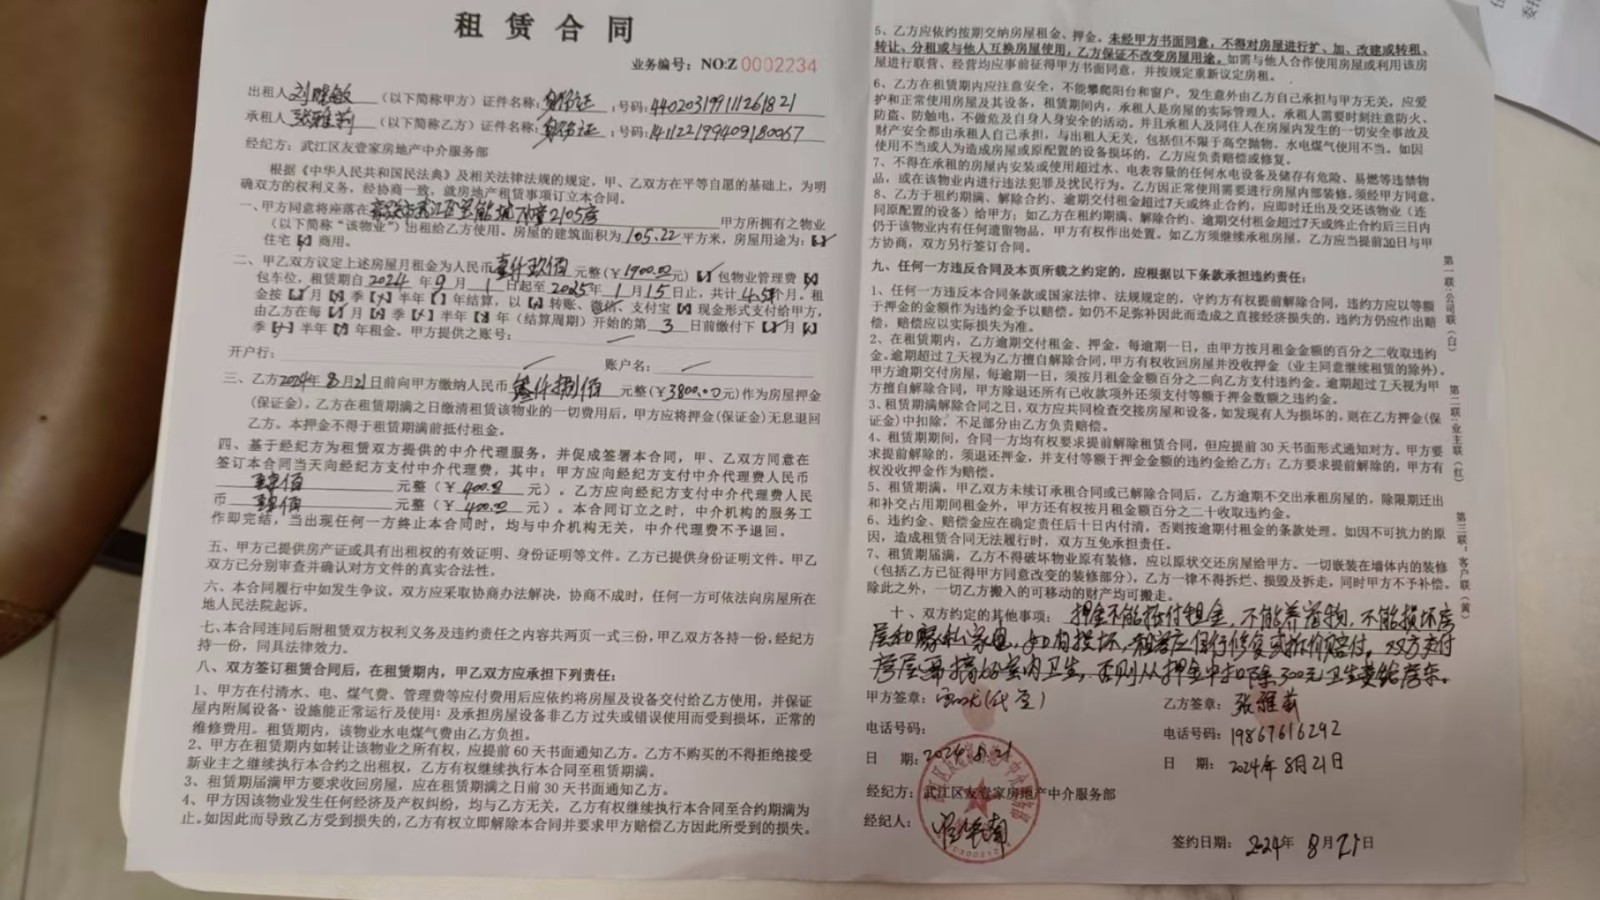 租赁合同
业务编号：NO:Z 0002234
出租人 刘晓敏 （以下简称甲方）证件名称：身份证 ：号码：440203199111261821
承租人 张雅莉 （以下简称乙方）证件名称：身份证 ：号码：141122199409180067
经纪方：武江区友壹家房地产中介服务部
根据《中华人民共和国民法典》及相关法律法规的规定，甲、乙双方在平等自愿的基础上，为明
确双方的权利义务，经协商一致，就房地产租赁事项订立本合同。
一、甲方同意将座落在 2105房 甲方所拥有之物业
（以下简称“该物业”）出租给乙方使用。房屋的建筑面积为105.22平方米，房屋用途为：【】
住宅【】商用。
二、甲乙双方议定上述房屋月租金为人民币 壹仟玖佰 元整（￥1900.00元）【】包物业管理费【】
包车位，租赁期自2024年9月1日起至2025年1月15日止，共计4.5个月。租
金按【】月【】季【】半年【】年结算，以【】转账、微信、支付宝【】现金形式支付给甲方，
由乙方在每【】月【】季【】半年【】年（结算周期）开始的第3日前缴付下【】月【】
季【】半年【】年租金。甲方提供之账号：
开户行： 账户名：
三、乙方2024年8月21日前向甲方缴纳人民币 叁仟捌佰 元整（￥3800.00元）作为房屋押金
（保证金）。乙方在租赁期满之日缴清租赁该物业的一切费用后，甲方应将押金（保证金）无息退回
乙方。本押金不得于租赁期满前抵付租金。
四、基于经纪方为租赁双方提供的中介代理服务，并促成签署本合同，甲、乙双方同意在
签订本合同当天向经纪方支付中介代理费，其中：甲方应向经纪方支付中介代理费人民币
肆佰 元整（￥400.00 元）。乙方应向经纪方支付中介代理费人民
币 肆佰 元整（￥400.00 元）。本合同订立之时，中介机构的服务工
作即完结，当出现任何一方终止本合同时，均与中介机构无关，中介代理费不予退回。
五、甲方已提供房产证或具有出租权的有效证明、身份证明等文件。乙方已提供身份证明文件。甲乙
双方已分别审查并确认对方文件的真实合法性。
六、本合同履行中如发生争议，双方应采取协商办法解决，协商不成时，任何一方可依法向房屋所在
地人民法院起诉。
七、本合同连同后附租赁双方权利义务及违约责任之内容共两页一式三份，甲乙双方各持一份，经纪方
持一份，同具法律效力。
八、双方签订租赁合同后，在租赁期内，甲乙双方应承担下列责任：
1、甲方在付清水、电、煤气费、管理费等应付费用后应依约将房屋及设备交付给乙方使用，并保证
屋内附属设备、设施能正常运行及使用；及承担房屋设备非乙方过失或错误使用而受到损坏，正常的
维修费用。租赁期内，该物业水电煤气费由乙方负担。
2、甲方在租赁期内如转让该物业之所有权，应提前60天书面通知乙方。乙方不购买的不得拒绝接受
新业主之继续执行本合约之出租权，乙方有权继续执行本合同至租赁期满。
3、租赁期届满甲方要求收回房屋，应在租赁期满之日前30天书面通知乙方。
4、甲方因该物业发生任何经济及产权纠纷，均与乙方无关，乙方有权继续执行本合同至合约期满为
止。如因此而导致乙方受到损失的，乙方有权立即解除本合同并要求甲方赔偿乙方因此所受到的损失。
5、乙方应依约按期交纳房屋租金、押金。未经甲方书面同意，不得对房屋进行扩、加、改建或转租、
转让、分租或与他人互换房屋使用，乙方保证不改变房屋用途。如需与他人合作使用房屋或利用该房
屋进行联营、经营均应事前征得甲方书面同意，并按规定重新议定房租。
6、乙方在租赁期内应注意安全，不能攀爬阳台和窗户，发生意外由乙方自己承担与甲方无关，应爱
护和正常使用房屋及其设备，租赁期间内，承租人是房屋的实际管理人，承租人需要时刻注意防火、
防盗、防触电，不做危及自身人身安全的活动。并且承租人及同住人在房屋内发生的一切安全事故及
财产安全都由承租人自己承担，与出租人无关，包括但不限于高空抛物、水电煤气使用不当。如因
使用不当或人为造成房屋或原配置的设备损坏的，乙方应负责赔偿或修复。
7、不得在承租的房屋内安装或使用超过水、电表容量的任何水电设备及储存有危险、易燃等违禁物
品，或在该物业内进行违法犯罪及扰民行为。乙方因正常使用需要进行房屋内部装修，须经甲方同意。
8、乙方于租约期满、解除合约、逾期交付租金超过7天或终止合约，应即时迁出及交还该物业（连
同原配置的设备）给甲方；如乙方在租约期满、解除合约、逾期交付租金超过7天或终止合约后三日内
仍于该物业内有任何遗留物品，甲方有权作出处置。如乙方须继续承租房屋，乙方应当提前30日与甲
方协商，双方另行签订合同。
九、任何一方违反合同及本页所载之约定的，应根据以下条款承担违约责任：
1、任何一方违反本合同条款或国家法律、法规规定的，守约方有权提前解除合同，违约方应以等额
于押金的金额作为违约金予以赔偿。如仍不足弥补因此而造成之直接经济损失的，违约方仍应作出赔
偿，赔偿应以实际损失为准。
2、在租赁期内，乙方逾期交付租金、押金，每逾期一日，由甲方按月租金金额的百分之二收取违约
金。逾期超过7天视为乙方擅自解除合同，甲方有权收回房屋并没收押金（业主同意继续租赁的除外）。
甲方逾期交付房屋，每逾期一日，须按月租金金额百分之二向乙方支付违约金。逾期超过7天视为甲
方擅自解除合同，甲方除退还所有已收款项外还须支付等额于押金数额之违约金。
3、租赁期满解除合同之日，双方应共同检查交接房屋和设备，如发现有人为损坏的，则在乙方押金（保
证金）中扣除，不足部分由乙方负责赔偿。
4、租赁期期间，合同一方均有权要求提前解除租赁合同，但应提前30天书面形式通知对方。甲方要
求提前解除的，须退还押金，并支付等额于押金金额的违约金给乙方；乙方要求提前解除的，甲方有
权没收押金作为赔偿。
5、租赁期满，甲乙双方未续订承租合同或已解除合同后，乙方逾期不交出承租房屋的，除限期迁出
和补交占用期间租金外，甲方还有权按月租金额百分之二十收取违约金。
6、违约金、赔偿金应在确定责任后十日内付清，否则按逾期付租金的条款处理。如因不可抗力的原
因，造成租赁合同无法履行时，双方互免承担责任。
7、租赁期届满，乙方不得破坏物业原有装修，应以原状交还房屋给甲方。一切嵌装在墙体内的装修
（包括乙方已征得甲方同意改变的装修部分），乙方一律不得拆烂、损毁及拆走，同时甲方不予补偿。
除此之外，一切乙方搬入的可移动的财产均可搬走。
十、双方约定的其他事项：押金不能抵付租金，不能养宠物，不能损坏房
屋和家私家电，如有损坏，租客应保行修复或折价赔付，双方交付
房屋需搞好室内卫生，否则从押金中扣除300元卫生费给房东。
甲方签章： （代签）
乙方签章：张雅莉
电话号码：
电话号码：19867616292
日 期：2024.8.21
日 期：2024年8月21日
经纪方：武江区友壹家房地产中介服务部
经纪人：
签约日期：2024年8月21日
第一联：公司联（白）
第二联：业主联（红）
第三联：客户联（黄）